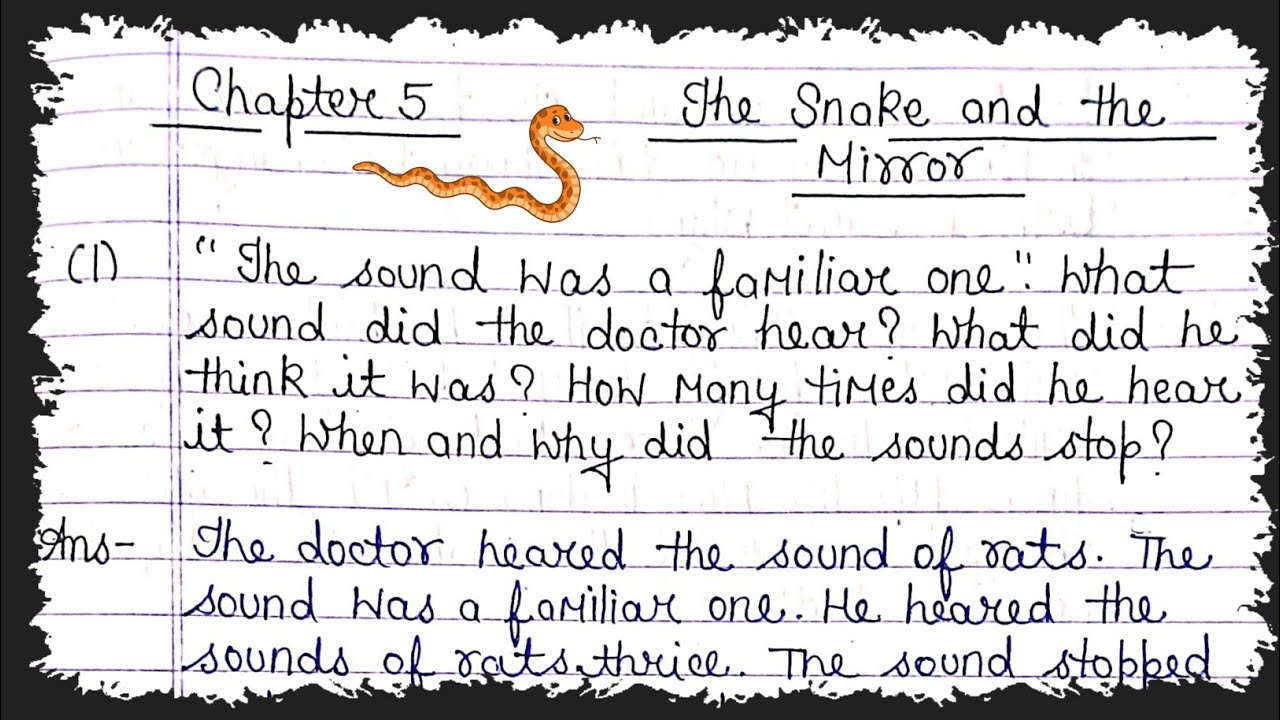 Chapter 5
The Snake and the
Mirror
(1) "The sound was a familiar one". What
sound did the doctor hear? What did he
think it was? How many times did he hear
it? When and why did the sounds stop?
Ans- The doctor heared the sound of rats. The
sound was a familiar one. He heared the
sounds of rats thrice. The sound stopped